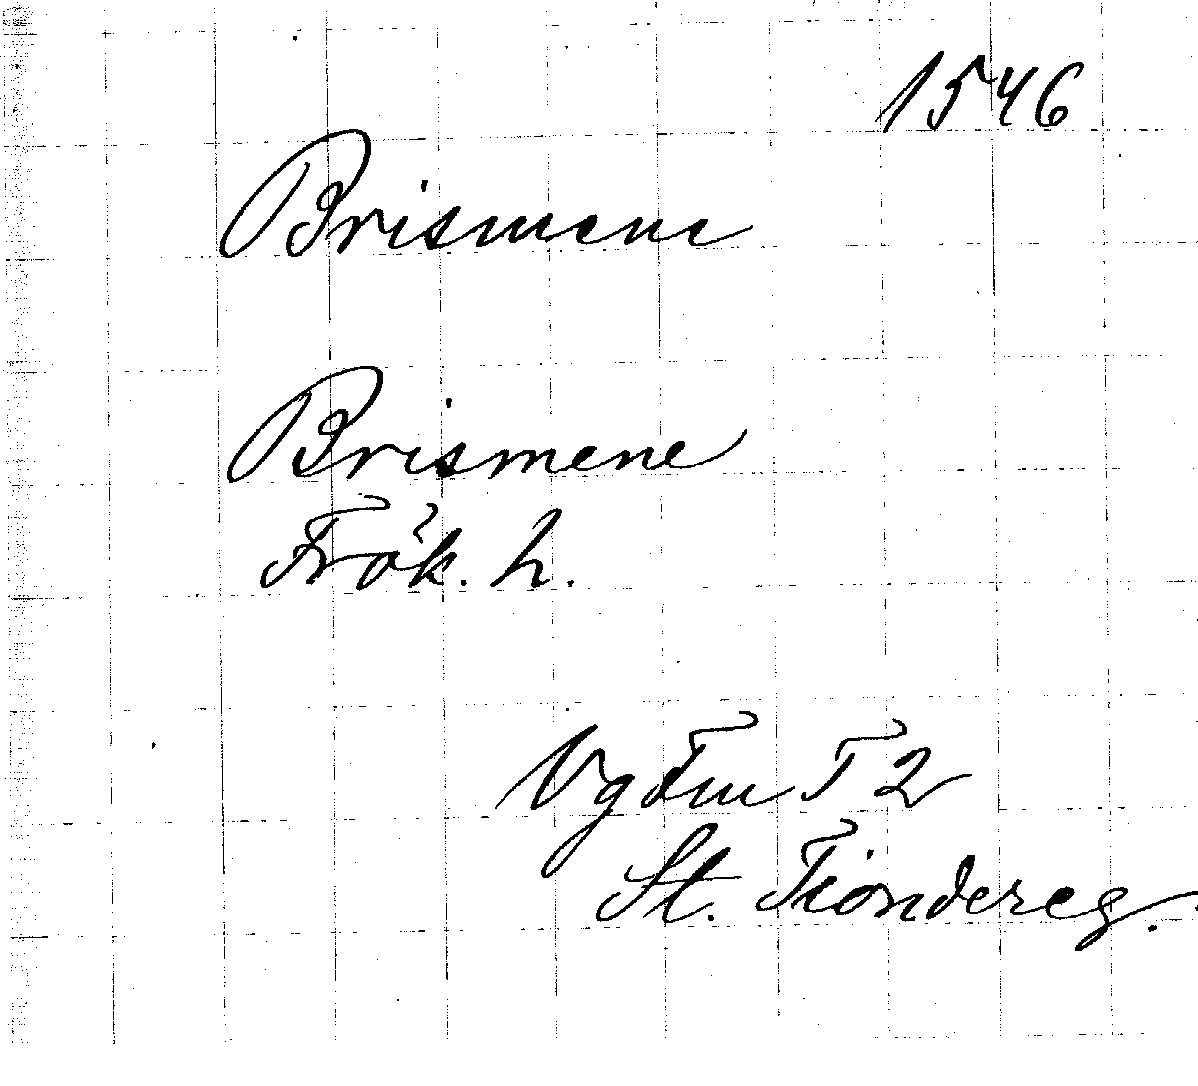 1546
Brismene
Brismene
Frök. h.
Vg Fm T 2
St. Tiondereg.